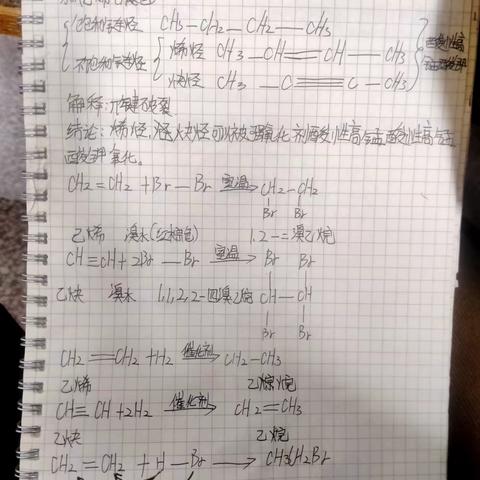 饱和链烃 CH3-CH2-CH2-CH3
不饱和链烃 烯烃 CH3-CH=CH-CH3
炔烃 CH3-C≡C-CH3
解释:π键破裂
结论:烯烃,炔烃可以被强氧化剂酸性高锰酸性高锰
酸钾氧化。
CH2=CH2+Br-Br 室温→ CH2-CH2
Br Br
乙烯 溴水(红棕色) 1,2-二溴乙烷
CH≡CH+2Br-Br 室温→ Br Br
乙炔 溴水 1,1,2,2-四溴乙烷 CH-CH
Br Br
CH2=CH2+H2 催化剂→ CH2-CH3
乙烯 乙烷
CH≡CH+2H2 催化剂→ CH2=CH3
乙炔 乙烷
CH2=CH2+H-Br→CH3CH2Br